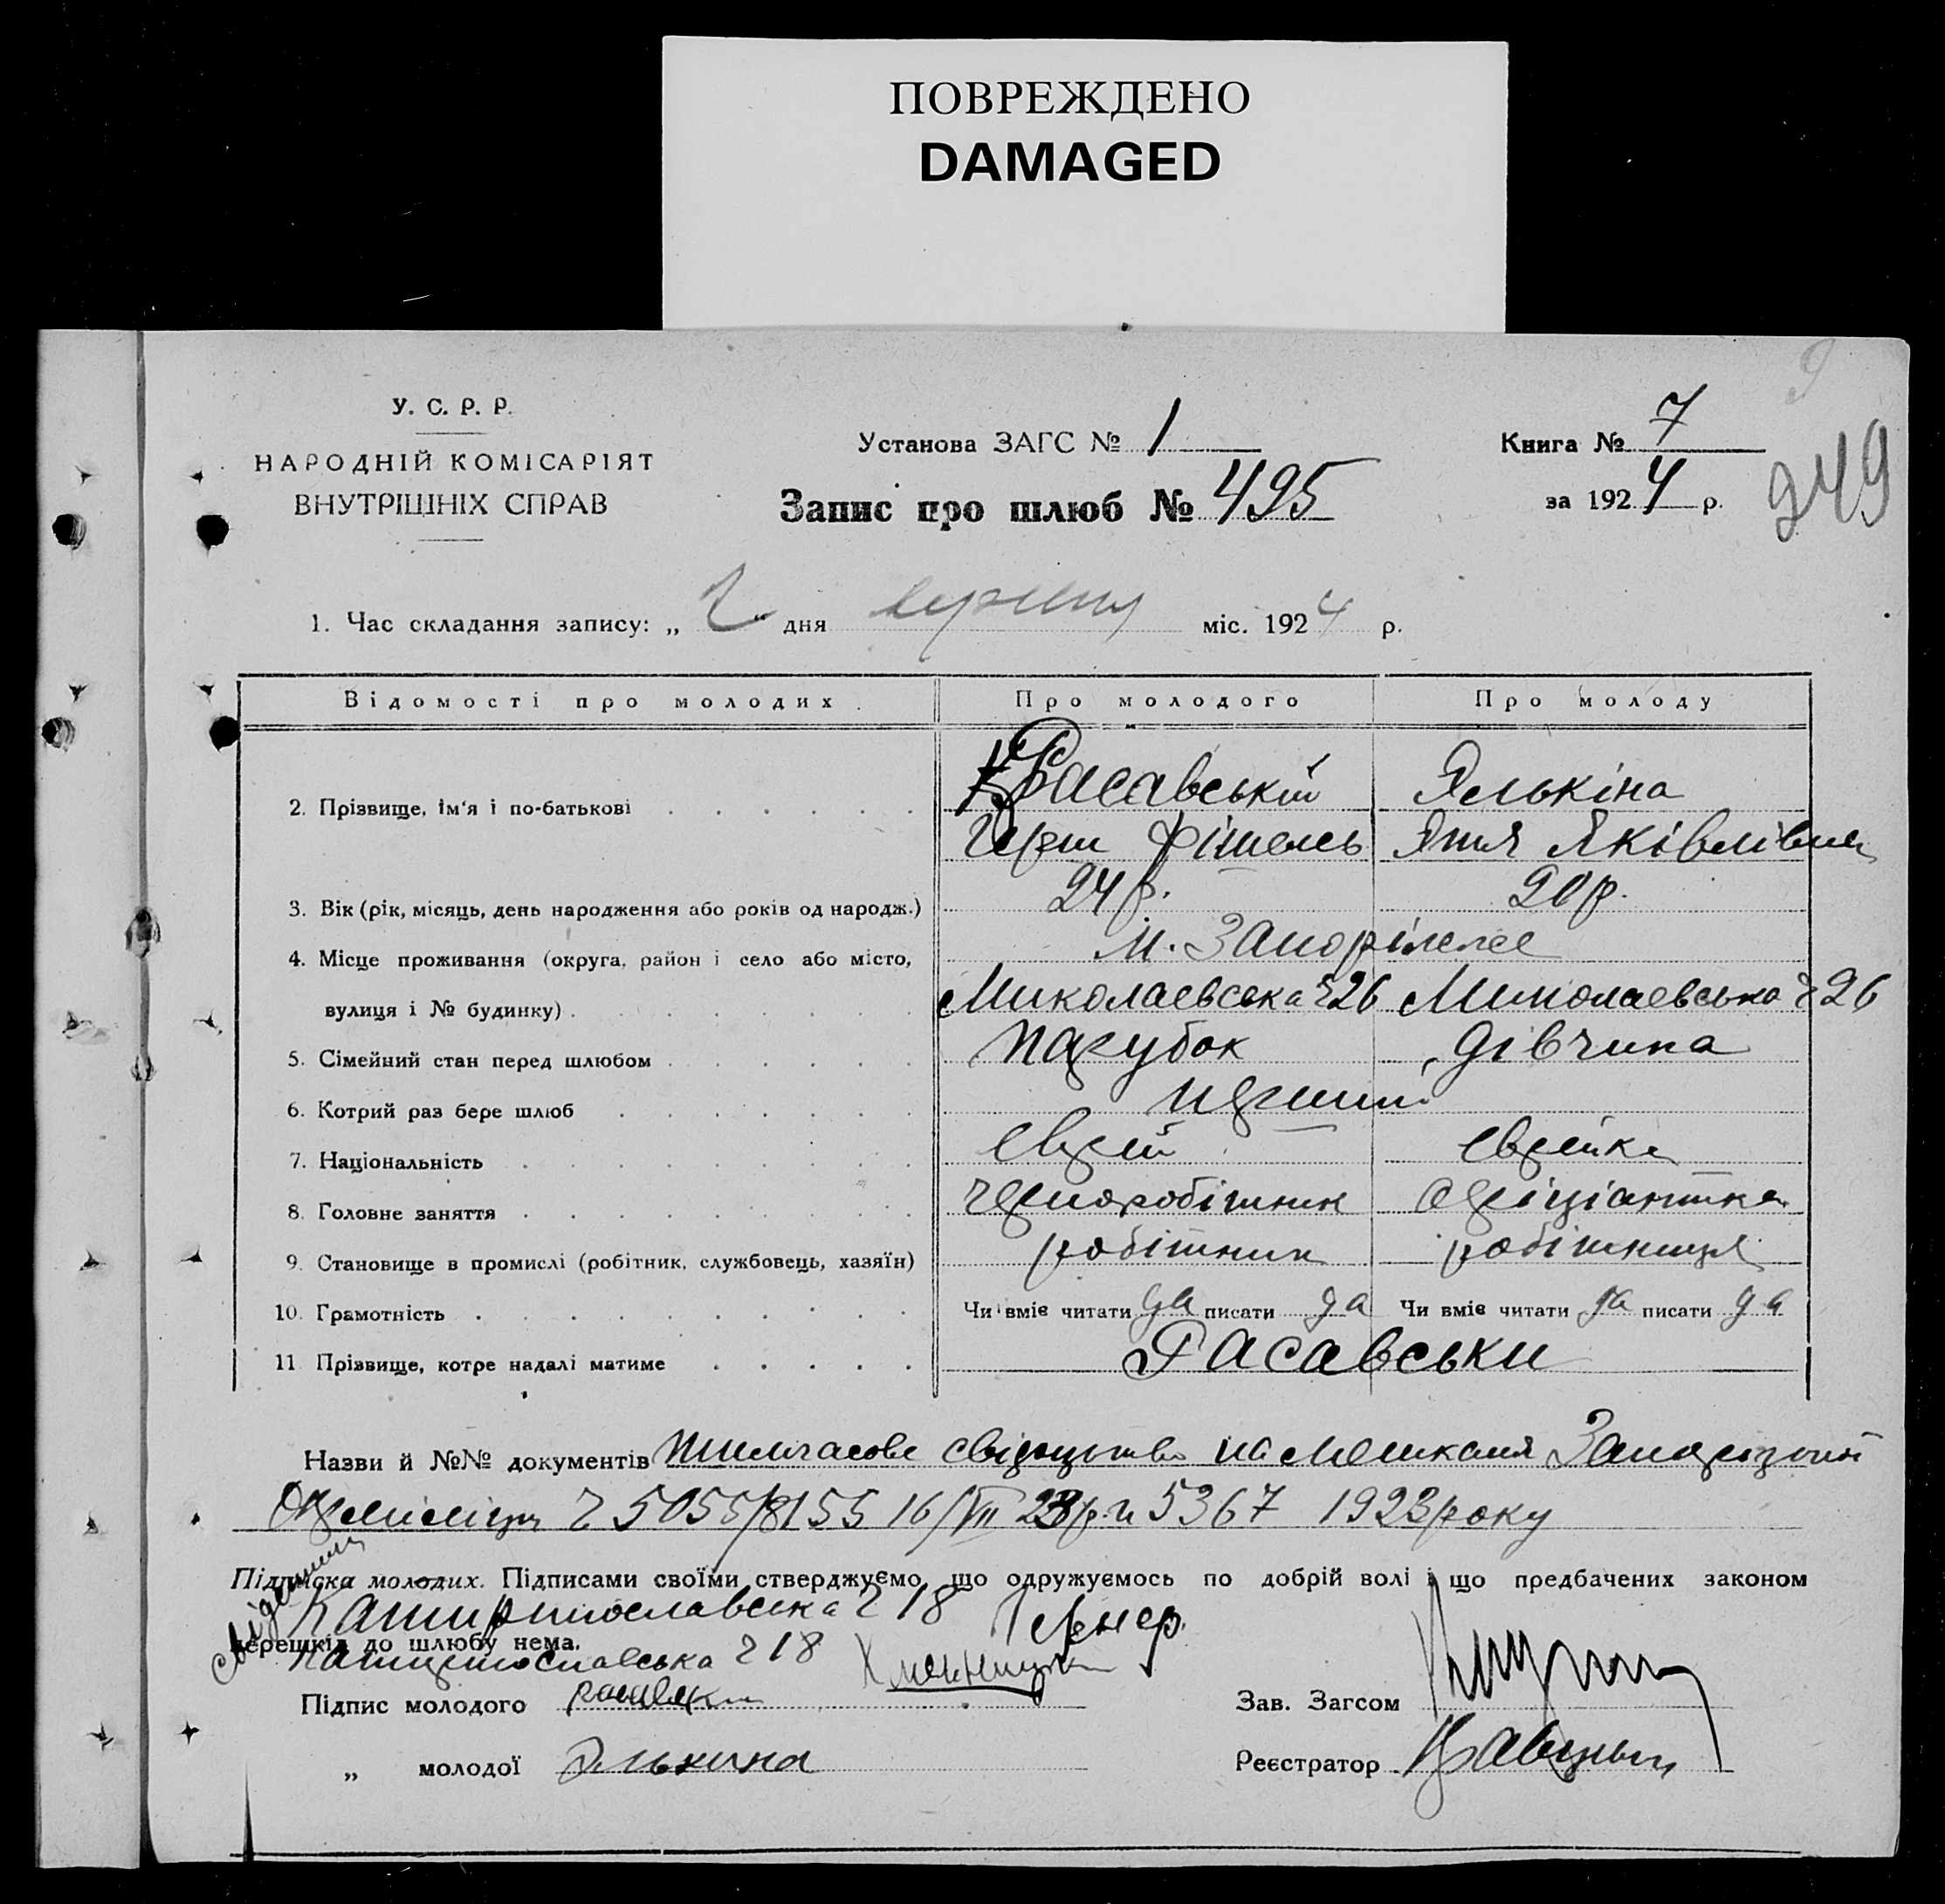 ПОВРЕЖДЕНО
DAMAGED
У. С. Р. Р.
НАРОДНІЙ КОМІСАРІЯТ
ВНУТРІШНІХ СПРАВ
Установа ЗАГС № 1
Запис про шлюб № 495
Книга № 7
за 1924 р.
249
1. Час складання запису: „ 2 “ дня серпня міс. 1924 р.
Відомості про молодих Про молодого Про молоду
2. Прізвище, ім'я і по-батькові Расавський Элькіна
Герш Фішель Яківлівна
3. Вік (рік, місяць, день народження або років од народж.) 24 р. 20 р.
4. Місце проживання (округа, район і село або місто, м. Запоріжжє
вулиця і № будинку) Миколаевська ч 26 Миколаевська ч 26
5. Сімейний стан перед шлюбом парубок дівчина
6. Котрий раз бере шлюб перший
7. Національність еврей еврейка
8. Головне заняття чернoробітник офіціантка
9. Становище в промислі (робітник, службовець, хазяїн) робітник робітниця
10. Грамотність Чи вміє читати да писати да Чи вміє читати да писати да
11 Прізвище, котре надалі матиме Расавськи
Назви й №№ документів тимчасове свідоцтво на мешканя
ч 5055/8155 16/VII 23 р. ч 5367 1923 року
Підписка молодих. Підписами своїми стверджуємо, що одружуємось по добрій волі і що предбачених законом
Катиринославська ч 18
перешкід до шлюбу нема.
Катиринославська ч 18
Підпис молодого
Зав. Загсом
„ молодої Элькина
Реєстратор